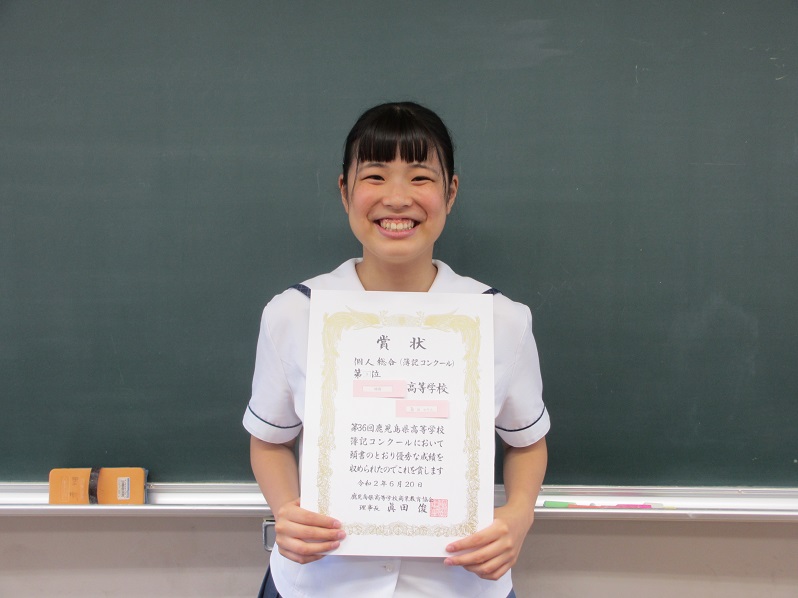 賞状
個人総合（簿記コンクール）
第 位
高等学校
第36回鹿児島県高等学校
簿記コンクールにおいて
頭書のとおり優秀な成績を
収められたのでこれを賞します
令和２年６月２０日
鹿児島県高等学校商業教育協会
理事長 眞田 俊